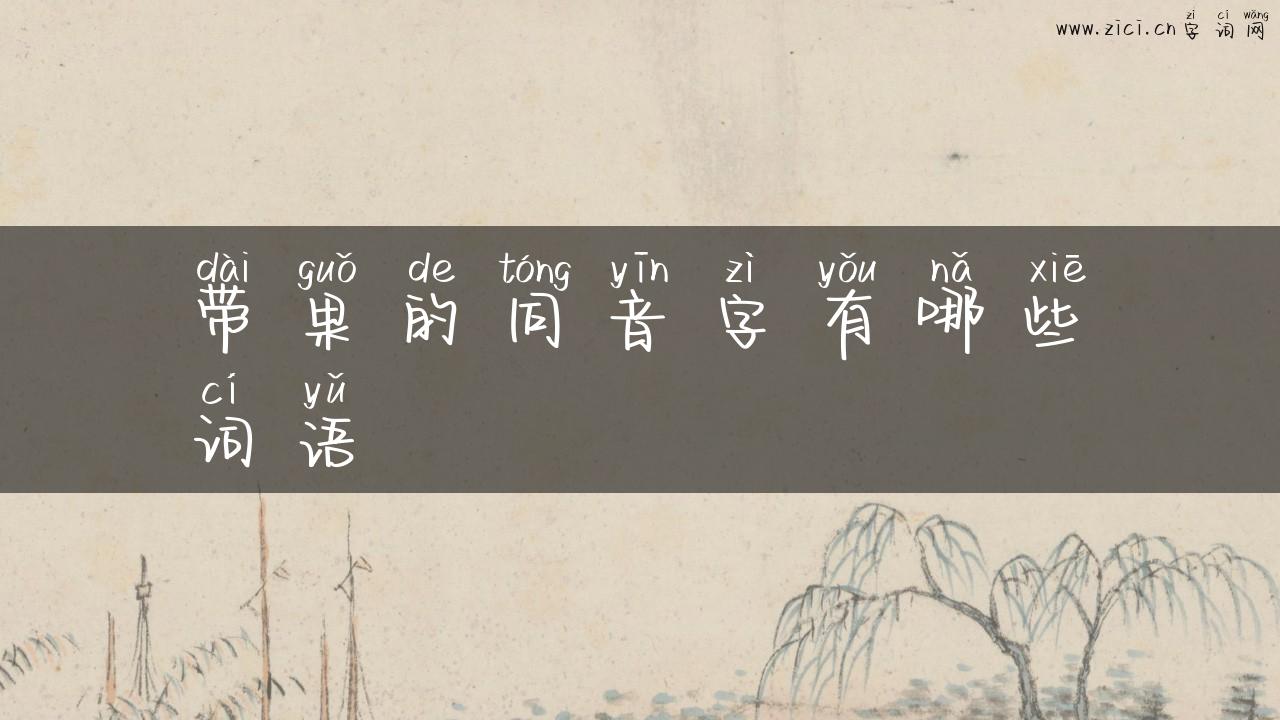 zì cí wǎng
www.zici.cn 字词网
dài guǒ de tóng yīn zì yǒu nǎ xiē
带果的同音字有哪些
cí yǔ
词语